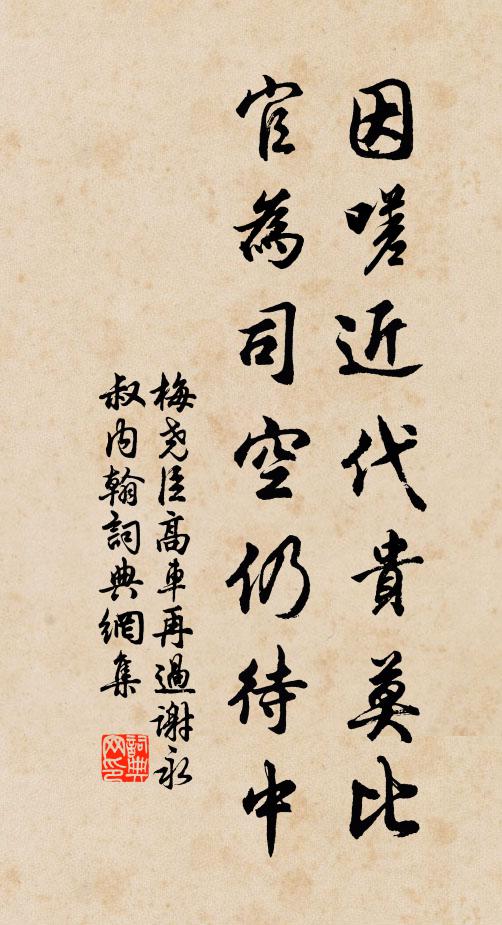 因嗟近代貴莫比
官為司空仍待中
梅堯臣高車再過謝永
叔内翰詞典網集
詞典
网印